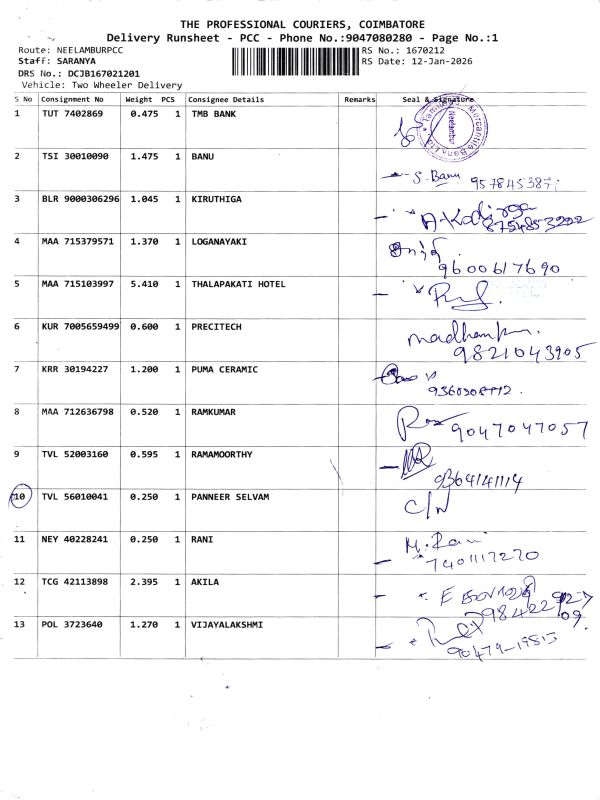 THE PROFESSIONAL COURIERS, COIMBATORE
Delivery Runsheet - PCC - Phone No.:9047080280 - Page No.:1
Route: NEELAMBURPCC RS No.: 1670212
Staff: SARANYA RS Date: 12-Jan-2026
DRS No.: DCJB167021201
Vehicle: Two Wheeler Delivery
S No Consignment No Weight PCS Consignee Details Remarks Seal & Signature
1 TUT 7402869 0.475 1 TMB BANK
Neelambur
2 TSI 30010090 1.475 1 BANU
S. Banu
3 BLR 9000306296 1.045 1 KIRUTHIGA
8754853222
4 MAA 715379571 1.370 1 LOGANAYAKI
9600617690
5 MAA 715103997 5.410 1 THALAPAKATI HOTEL
6 KUR 7005659499 0.600 1 PRECITECH
9821043905
7 KRR 30194227 1.200 1 PUMA CERAMIC
8 MAA 712636798 0.520 1 RAMKUMAR
9047047057
9 TVL 52003160 0.595 1 RAMAMOORTHY
9364141114
10 TVL 56010041 0.250 1 PANNEER SELVAM
C/N
11 NEY 40228241 0.250 1 RANI
M. Rani
7401117270
12 TCG 42113898 2.395 1 AKILA
13 POL 3723640 1.270 1 VIJAYALAKSHMI